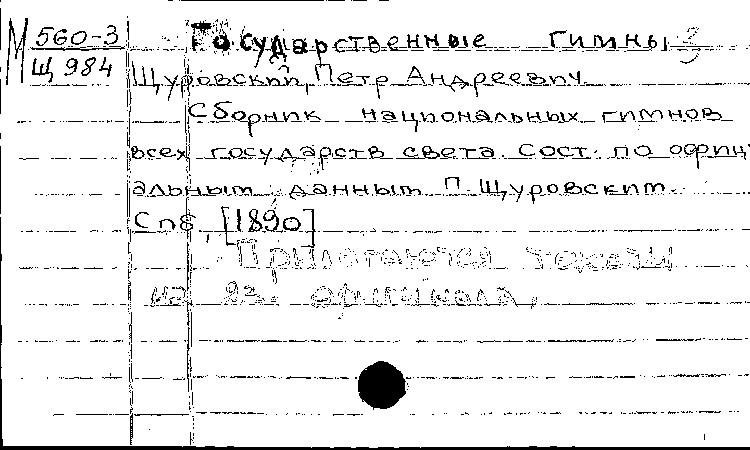 М 560-3
Щ 984
Государственные гимны 3
Щуровский, Петр Андреевич
Сборник национальных гимнов
всех государств света. Сост. по офици
альным данным П. Щуровским.
Спб, [1890]
Прилагаются тексты
на яз. оригинала.